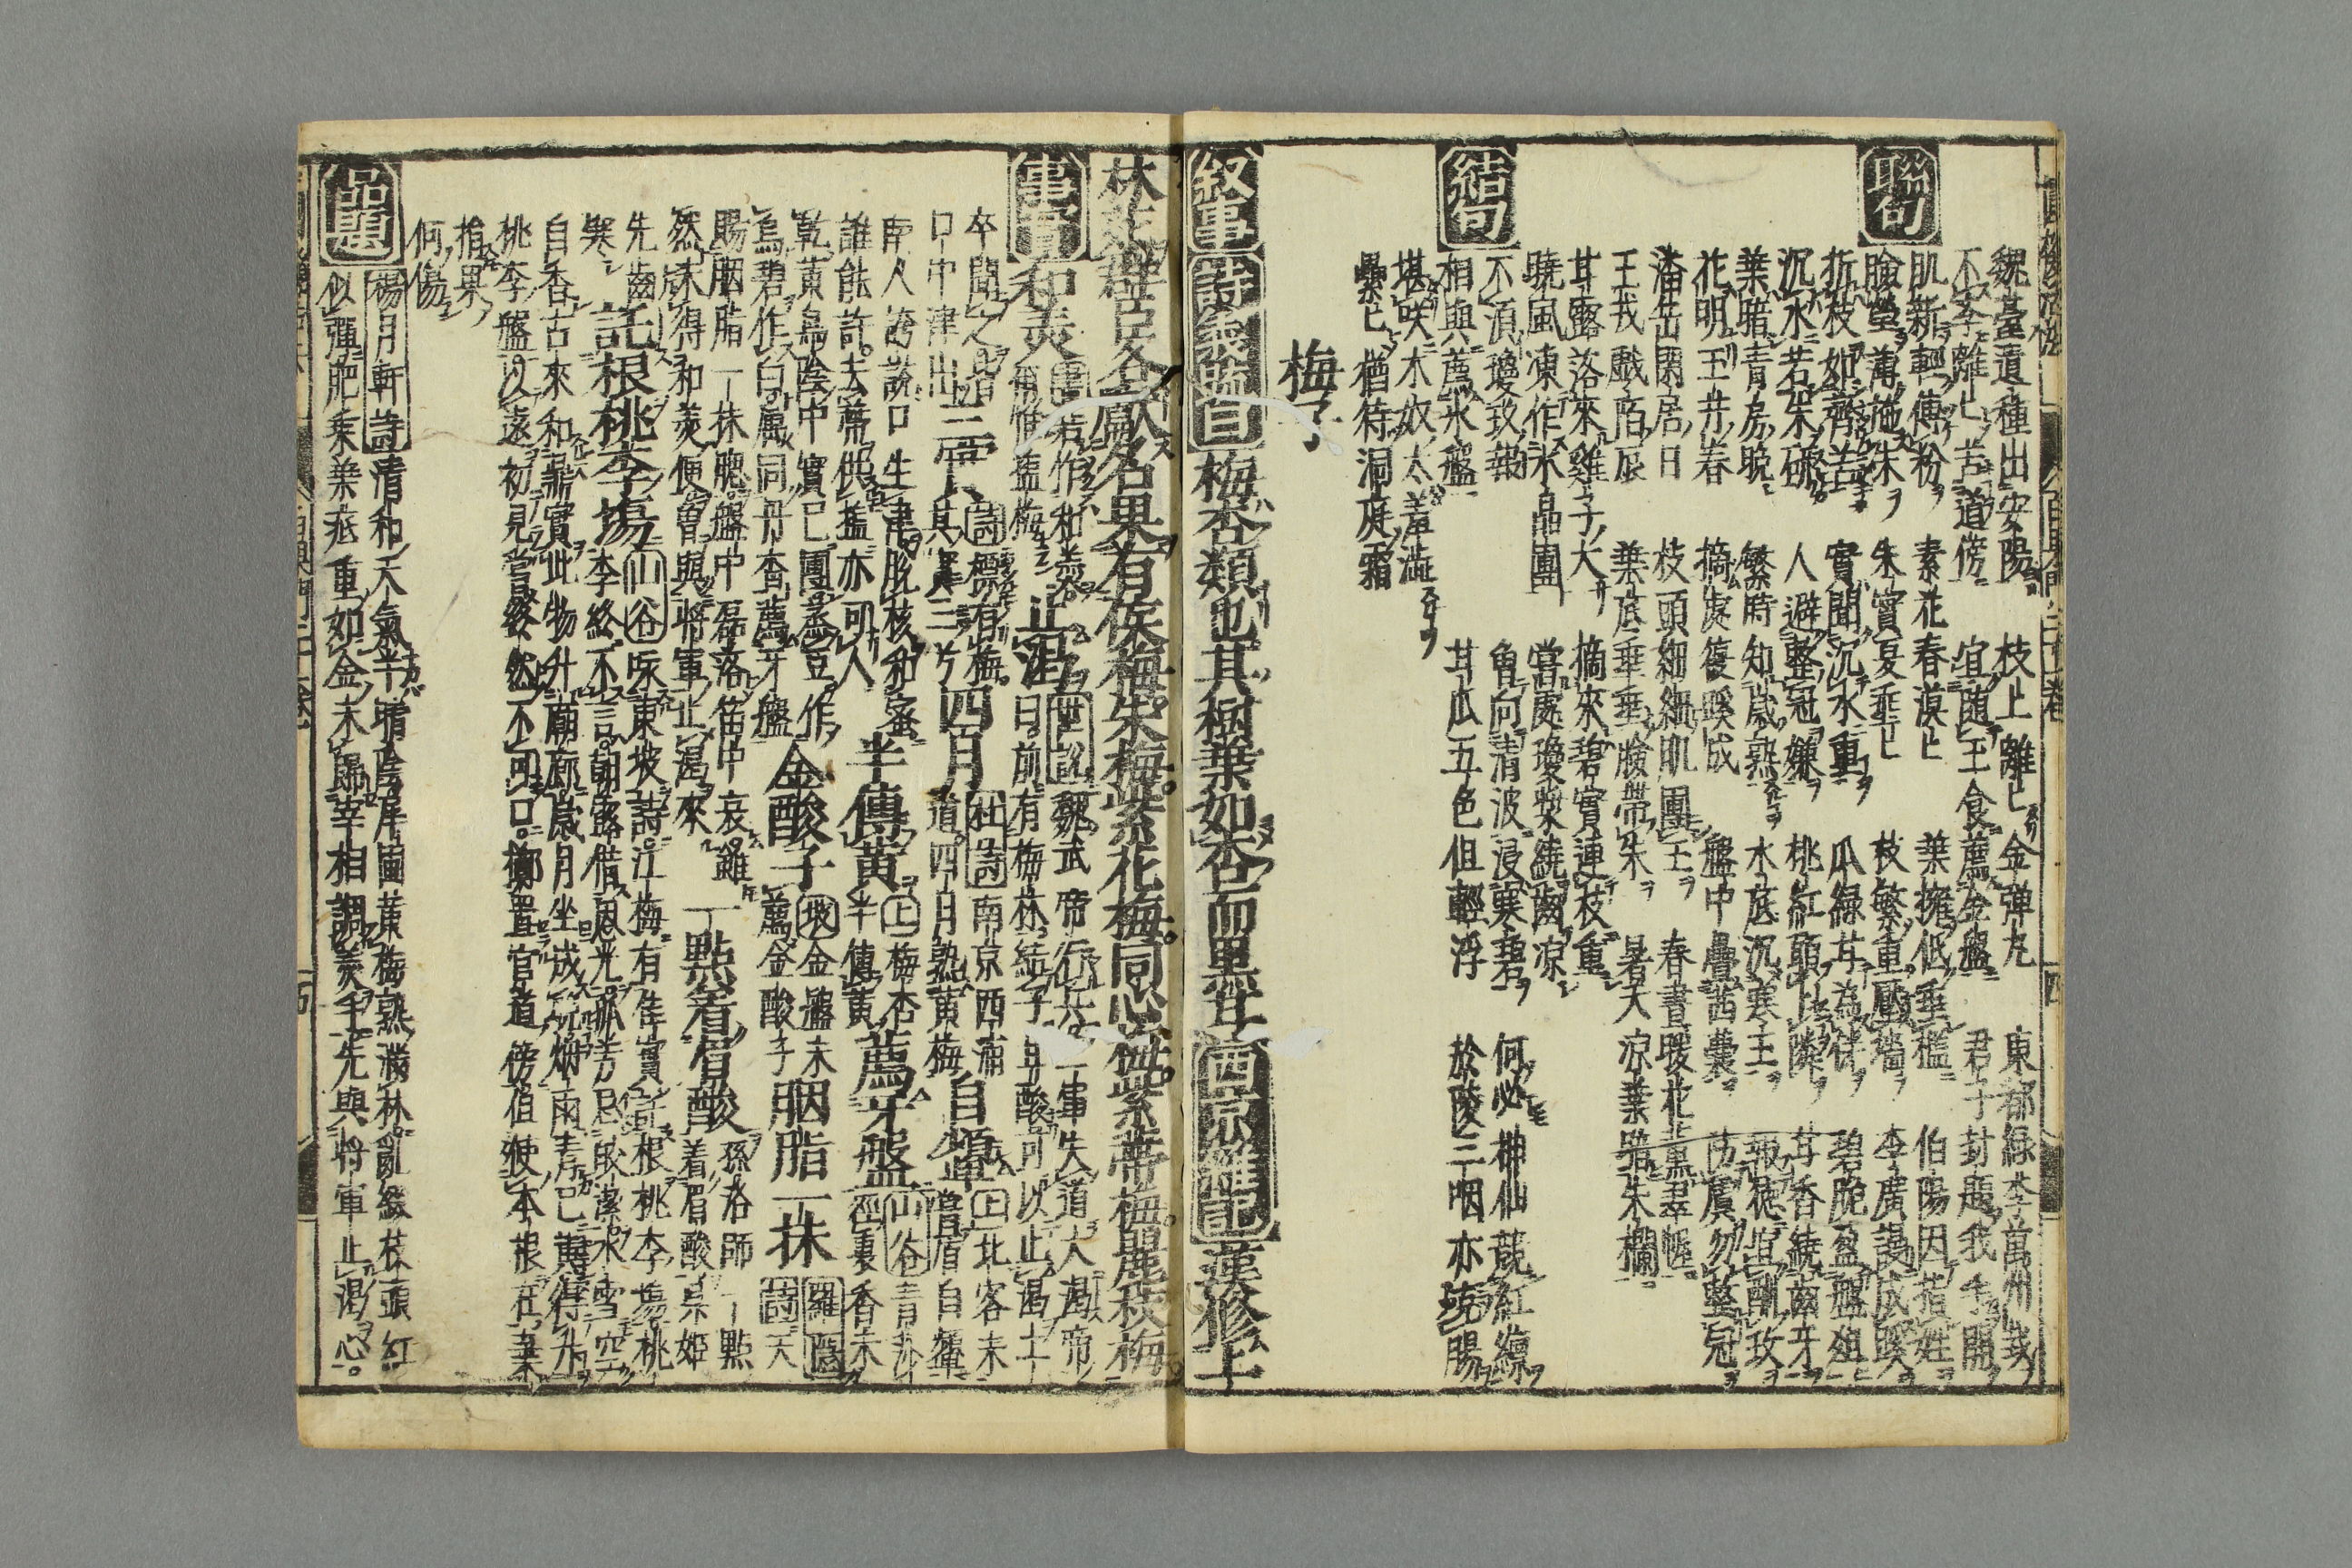 聯句
魏臺遺種出安陽 枝上離〻金彈丸 東都緑李萬州栽
不李離〻苦道傍 宜随王食薦金盤 君子封題我手開
肌新輕傅粉 素花春漠〻 葉擁低垂檻 伯陽因指姓
臉瑩薄施朱 朱實夏垂〻 枝繁重壓墻 李廣謾成蹊
折枝如齊苦 實聞沉水重 瓜緑甘為伴 碧脆盈盤俎
沉水若朱硃 人避整冠嫌 桃紅願比隣 甘香繞齒牙
葉暗青房晩 繁時知歲熟 水底沉寒玉 報德宜酬玫
花明玉井春 摘處復蹊成 盤中疊茜囊 防虞勿整冠
潘岳閑居日 枝頭細細肌團玉 春晝暖花薫翠幄
王戎戲陌辰 葉底垂垂臉帶朱 暑天凉葉暗朱欄
甘露落來雞子大 摘來碧實連枝重
曉風凍作水晶團 當處瓊漿繞齒凉
不湏瓊玫報 曾向清波浸寒碧 何必神仙誇紅縹
相與薦氷盤 甘瓜五色但輕浮 於陵三咽亦撓腸
結句
堪咲木奴太羞澁
纍〻猶待洞庭霜
梅子
叙事 詩義䟽曰 梅杏類也其樹葉如杏而黒耳 西京雜記 漢修上
林苑群臣各獻名果有侯梅朱梅紫花梅同心梅紫蒂梅麗枝梅
事實 和羹 書若作和羹爾惟塩梅 止渇 世說魏武帝行兵一軍失道大渇帝曰前有梅林結子甘酸可以止渇士
卒聞之皆口中津出 三實 詩摽有梅其實三兮 四月 杜詩南京西浦道四月熟黄梅 自顰 上北客未嘗眉自顰
南人誇說口生津脫核和蜜誰能許去薦供塩亦可人 半傳黄 上梅杏半傳黄 薦牙盤 山谷青沙徑裏香未
乾黄鳥陰中實已團蒸豆作烏碧作白属同丹杏薦牙盤 金酸子 坡金盤未薦金酸子 胭脂一抹 羅隱詩天
賜胭脂一抹腮盤中磊落笛中哀雖然未得和羹便曾與將軍止渇來 一點着眉酸 孫洛師一點着眉酸呆姬
先齒寒 託根桃李塲 山谷咏東坡詩江梅有佳實託根桃李塲桃李終不言朝露借恩光孤芳忌皎潔氷雪空
自香古來和鼎實此物升廟廊歲月坐成晩烟雨青已黄得升
桃李盤以遠初見嘗終然不可口擲置官道傍但使本根在棄
捐果何傷
品題 楊月軒詩 清和天氣半晴陰岸圃黄梅熟滿林亂綴枝頭紅
似彈肥乗葉㾗重如金未歸宰相調羹手先與將軍止渇心